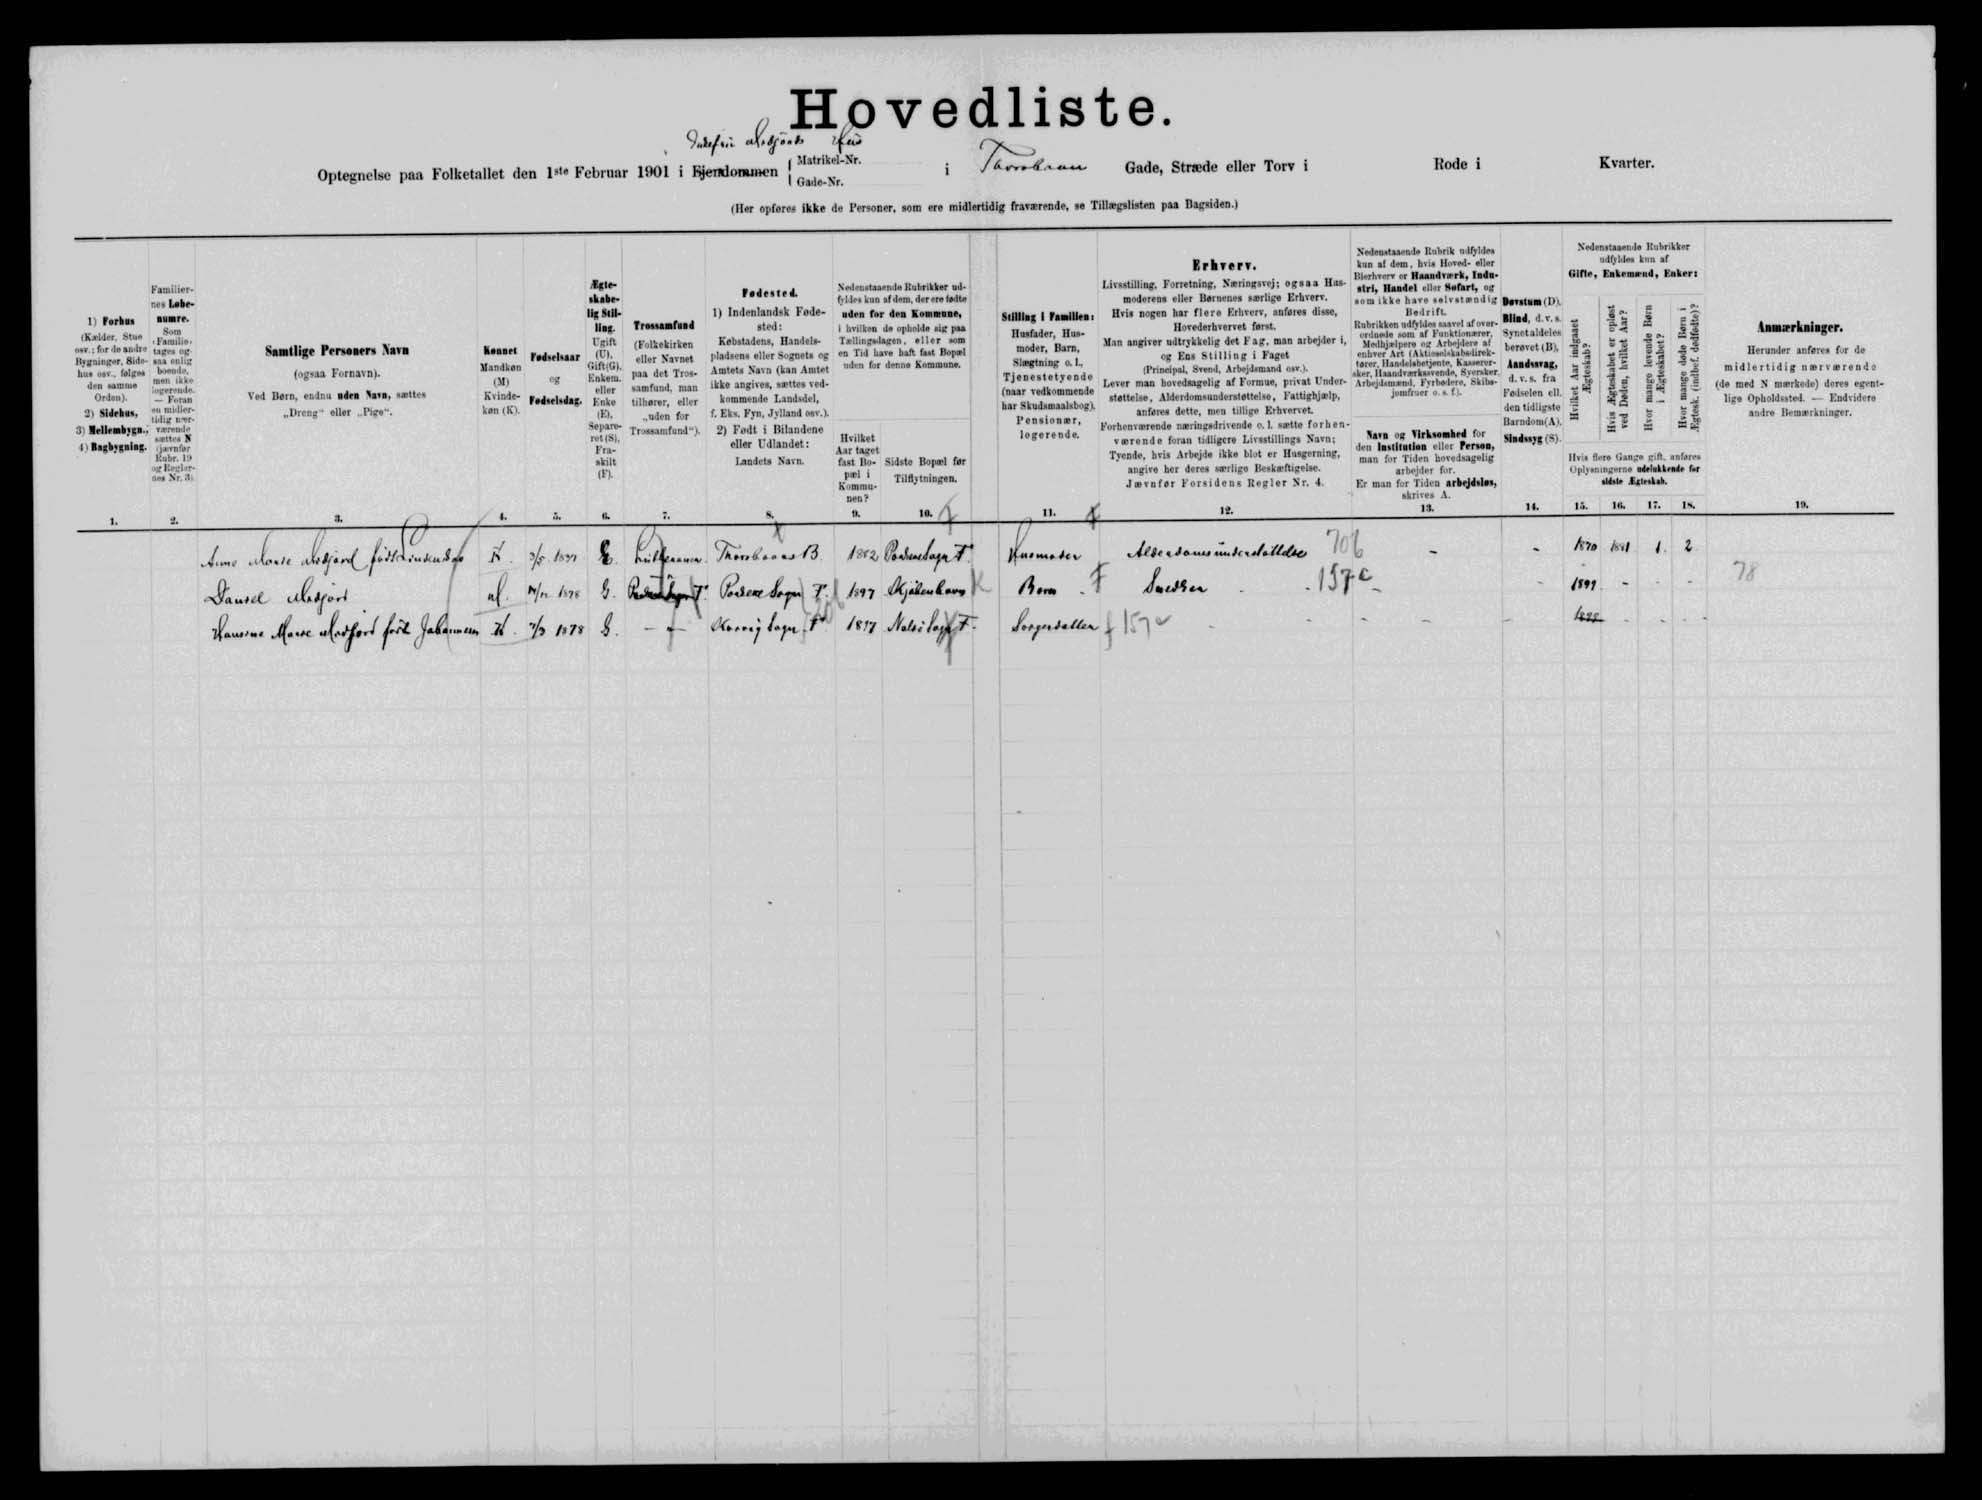 Hovedliste.
Hus
Optegnelse paa Folketallet den 1ste Februar 1901 i Ejendommen { Matrikel-Nr. Gade-Nr. i Thorshavn Gade, Stræde eller Torv i Rode i Kvarter.
(Her opføres ikke de Personer, som ere midlertidig fraværende, se Tillægslisten paa Bagsiden.)
1) Forhus
(Kælder, Stue
osv.; for de andre
Bygninger, Side-
hus osv., følges
den samme
Orden).
2) Sidehus,
3) Mellembygn.,
4) Bagbygning.
Familier-
nes Løbe-
numre.
Som
Familie
tages og-
saa enlig
boende,
men ikke
logerende.
— Foran
en midler-
tidig nær-
værende
sættes N
(jævnfør
Rubr. 19
og Regler-
nes Nr. 3).
Samtlige Personers Navn
(ogsaa Fornavn).
Ved Børn, endnu uden Navn, sættes
„Dreng“ eller „Pige“.
Kønnet
Mandkøn
(M)
Kvinde-
køn (K).
Fødselsaar
og
Fødselsdag.
Ægte-
skabe-
lig Stil-
ling.
Ugift
(U),
Gift(G).
Enkem.
eller
Enke
(E),
Separe-
ret (S),
Fra-
skilt
(F).
Trossamfund
(Folkekirken
eller Navnet
paa det Tros-
samfund, man
tilhører, eller
„uden for
Trossamfund“).
Fødested.
1) Indenlandsk Føde-
sted:
Købstadens, Handels-
pladsens eller Sognets og
Amtets Navn (kan Amtet
ikke angives, sættes ved-
kommende Landsdel,
f. Eks. Fyn, Jylland osv.).
2) Født i Bilandene
eller Udlandet:
Landets Navn.
Nedenstaaende Rubrikker ud-
fyldes kun af dem, der ere fødte
uden for den Kommune,
i hvilken de opholde sig paa
Tællingsdagen, eller som
en Tid have haft fast Bopæl
uden for denne Kommune.
Hvilket
Aar taget
fast Bo-
pæl i
Kommu-
nen?
Sidste Bopæl før
Tilflytningen.
Stilling i Familien:
Husfader, Hus-
moder, Barn,
Slægtning o. l.,
Tjenestetyende
(naar vedkommende
har Skudsmaalsbog),
Pensionær,
logerende.
Erhverv.
Livsstilling, Forretning, Næringsvej; ogsaa Hus-
moderens eller Børnenes særlige Erhverv.
Hvis nogen har flere Erhverv, anføres disse,
Hovederhvervet først.
Man angiver udtrykkelig det Fag, man arbejder i,
og Ens Stilling i Faget
(Principal, Svend, Arbejdsmand osv.).
Lever man hovedsagelig af Formue, privat Under-
støttelse, Alderdomsunderstøttelse, Fattighjælp,
anføres dette, men tillige Erhvervet.
Forhenværende næringsdrivende o. l. sætte forhen-
værende foran tidligere Livsstillings Navn;
Tyende, hvis Arbejde ikke blot er Husgerning,
angive her deres særlige Beskæftigelse.
Jævnfør Forsidens Regler Nr. 4.
Nedenstaaende Rubrik udfyldes
kun af dem, hvis Hoved- eller
Bierhverv er Haandværk, Indu-
stri, Handel eller Søfart, og
som ikke have selvstændig
Bedrift.
Rubrikken udfyldes saavel af over-
ordnede som af Funktionærer,
Medhjælpere og Arbejdere af
enhver Art (Aktieselskabsdirek-
tører, Handelsbetjente, Kasserer-
sker, Haandværkssvende, Syersker,
Arbejdsmænd, Fyrbødere, Skibs-
jomfruer o. s. f.).
Navn og Virksomhed for
den Institution eller Person,
man for Tiden hovedsagelig
arbejder for.
Er man for Tiden arbejdsløs,
skrives A.
Døvstum (D).
Blind, d. v. s.
Synet aldeles
berøvet (B),
Aandssvag,
d. v. s. fra
Fødselen ell.
den tidligste
Barndom(A).
Sindssyg (S).
Nedenstaaende Rubrikker
udfyldes kun af
Gifte, Enkemænd, Enker:
Hvilket Aar indgaaet
Ægteskab?
Hvis Ægteskabet er opløst
ved Døden, hvilket Aar?
Hvor mange levende Børn
i Ægteskabet?
Hvor mange døde Børn i
Ægtesk. (indbef. dødfødte)?
Hvis flere Gange gift, anføres
Oplysningerne udelukkende for
sidste Ægteskab.
Anmærkninger.
Herunder anføres for de
midlertidig nærværende
(de med N mærkede) deres egent-
lige Opholdssted. — Endvidere
andre Bemærkninger.
1. 2. 3. 4. 5. 6. 7. 8. 9. 10. 11. 12. 13. 14. 15. 16. 17. 18. 19.
Anne Marie født K. E. Luthheraner. Thorshavns B. 1882 F. Husmoder Alderdomsunderstøttelse 706 - - 1870 1881 1. 2
Daniel M. 1878 G. Sogn F. 1897 Kjøbenhavn K Barn F Snedker 157c - - 1899 - - - 78
Hansine Marie født Johannesen K. 1878 G. - Sogn F. 1897 Nolsø Sogn F. f 157c - - - 1899 - - -